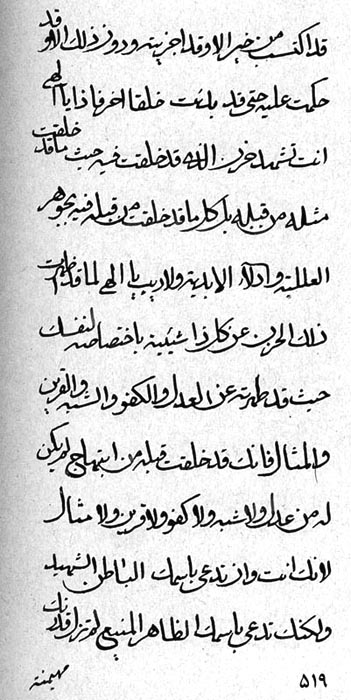 قد اكتسب من خير الا وقد اجزيته ودون ذلك الا وقد
حكمت عليه حتى قد بلغت خلقا اخر فاذا يا الهي
انت تشهد حزن الذي قد خلقت فيه حيث ما قد خلقت
مثله من قبله بل كل ما قد خلقت من قبله فيه بجوهر
العلية وادلاء الابدية ولا ريب يا الهي لما قد
ذلك الحزن عن كل ذا شيئية باختصاصه لنفسك
حيث قد طهرته عن العدل والكفو والشبه والقرين
والمثال فانك قد خلقت قبله من ابتهاج لم يكن
له من عدل ولا شبه ولا كفو ولا قرين ولا مثال
لانك انت وان تدعى باسمك الباطن الشهيد
ولكنك تدعى باسمك الظاهر المنيع لم تزل قدرتك
مهيمنة
٥١٩